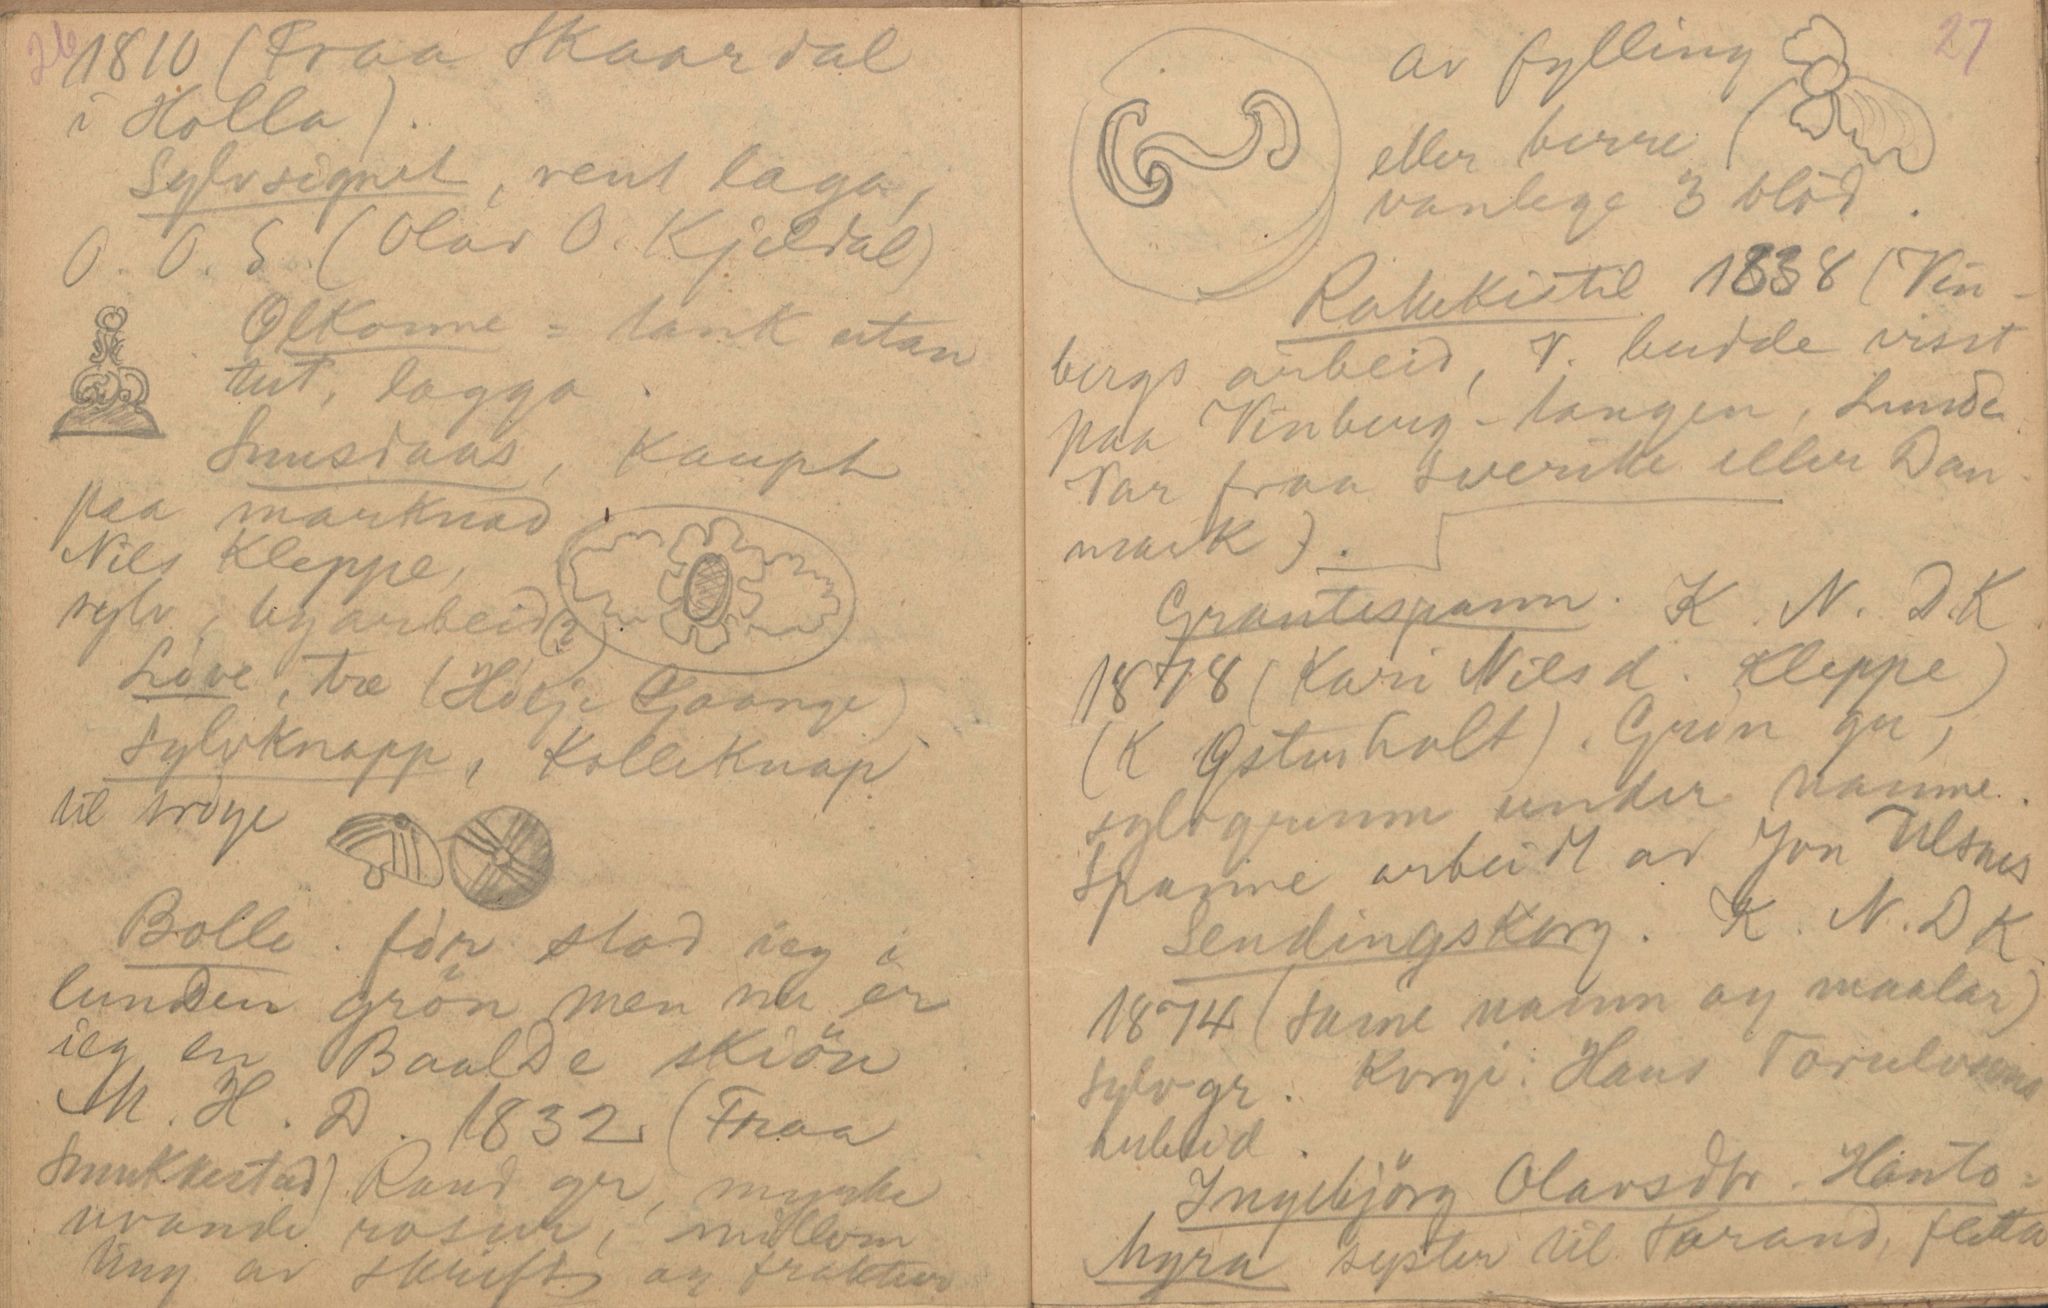 26
1810 (Fraa Skaardal
i Holla).
Sylvsignet, rent laga,
O. O. S. (Olav O. Kjeldal)
Ølkonne = tank utan
tut, lagga.
Snusdaas, kaupt
paa marknad
Nils Kleppe,
sylv, byarbeid(?)
Løve, tre (Hølje Gaange)
Sylvknapp, kolleknap
til trøye
Bolle. før stod ieg i
lunden grön men nu er
ieg en Baalde skiön
M. H. D. 1832 (Fraa
Smukkestad) Raud gr, myrke
rosur, millom
ting av skrift og fraktur
27
av fylling
eller berre
vanlege 3 blöd.
Rokkekistil 1838 (Vin-
bergs arbeid, V. budde visst
paa Vinberg-tangen, Lunde
Var fraa Sverike eller Dan-
mark).
Grautespann. K. N. D. K
1878 (Kari Nilsd. Kleppe)
(K Østerholt). Grøn gr,
sylvgrunn under namne.
Spanne arbeidt av Jon Ulsnes
Sendingskorg. K. N. D K
1874 (same namn og maalar)
Sylvgr. Korgi: Hans Torulvsons
arbeid.
Ingebjörg Olavsdtr. Hanto=
Myra syster til Targnd, fletta